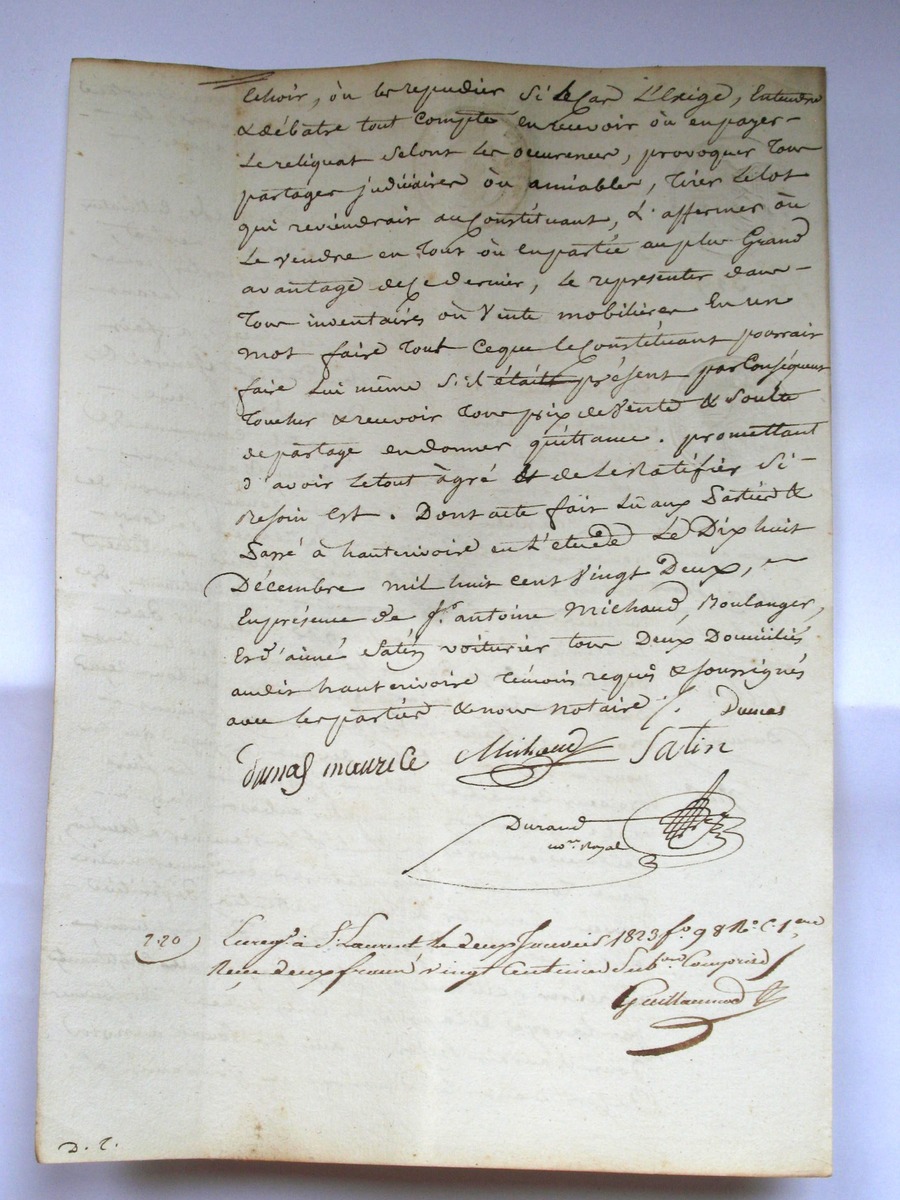 échoir, où les repudier si le Cas L'Exige, Entendre
& débatre tout Compte en recevoir où en payer-
Le reliquat Selont les occurences, provoquer Tous
partages judiciaires où amiables, Tirer Le lot
qui reviendrait au Constituant, L'affermer où
Le vendre en Tout où en partie au plus Grand
avantage de Ce dernier, Le representer dans-
Tous inventaires où Vente mobilieres En un
mot faire Tout Ceque le Constituant pourrait
faire Lui même S'il était présent par Conséquent
Toucher & recevoir Tous prix de Vente & Soulte
de partage en donner quittance. promettant
d'avoir Le tout àgré & de Le Ratifier Si-
Besoin Est. Dont acte fait Lu aux Parties &
Passé à hauterivoire en L'etude Le Dix huit
Décembre mil huit cent Vingt Deux,
En présence de antoine Michaud, Boulanger,
Et d'aimé Satin voiturier tous Deux Domiciliés
audit hauterivoire Témoins requis & soussignés
avec les parties & nous notaire %. Dumas
Dumas maurice Michaud Satin
Durand
no.re Royal
2.20 Enreg.é à S.t Laurent le deux Janvier 1823 f.o 98 R.o C. 1.ere
Reçu deux francs vingt Centimes Sub.on Comprise
Guillaumod
D. T.